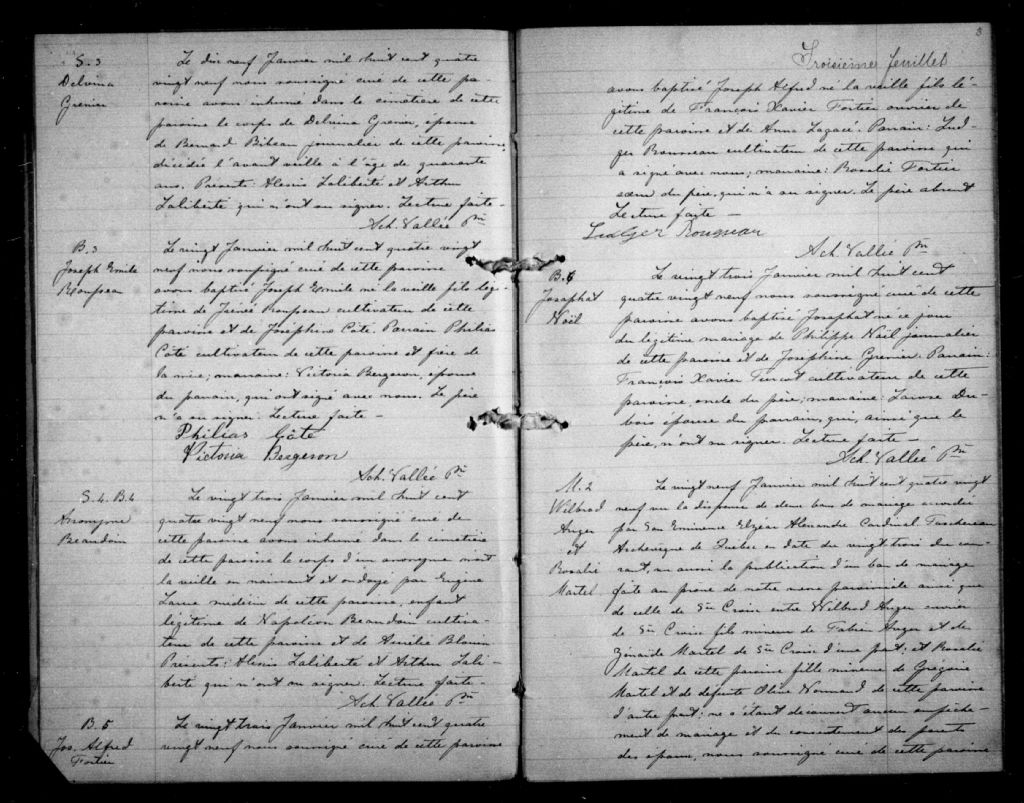 S. 3
Delvina
Grenier
Le dix neuf Janvier mil huit cent quatre
vingt neuf nous soussigné curé de cette pa-
roisse avons inhumé dans le cimetière de cette
paroisse le corps de Delvina Grenier, épouse
de Bernard Bibeau journalier de cette paroisse,
décédée l'avant veille à l'âge de quarante
ans. Présents: Alexis Laliberté et Arthur
Laliberté qui n'ont su signer. Lecture faite -
Ach. Vallée Ptre
B. 3
Joseph Emile
Rousseau
Le vingt Janvier mil huit cent quatre vingt
neuf nous soussigné curé de cette paroisse
avons baptisé Joseph Emile né la veille fils légi-
time de Irénée Rousseau cultivateur de cette
paroisse et de Joséphine Côté. Parrain Philias
Côté cultivateur de cette paroisse et frère de
la mère; marraine: Victoria Bergeron, épouse
du parrain, qui ont signé avec nous. Le père
n'a su signer. Lecture faite -
Philias Côté
Victoria Bergeron
Ach. Vallée Ptre
S. 4. B. 4
Anonyme
Beaudoin
Le vingt trois Janvier mil huit cent
quatre vingt neuf nous soussigné curé de
cette paroisse avons inhumé dans le cimetière
de cette paroisse le corps d'un anonyme mort
la veille en naissant et ondoyé par Eugène
médecin de cette paroisse, enfant
légitime de Napoléon Beaudoin cultiva-
teur de cette paroisse et de Amélie Blouin
Présents: Alexis Laliberté et Arthur Lali-
berté qui n'ont su signer. Lecture faite-
Ach. Vallée Ptre
B. 5
Jos. Alfred
Fortier
Le vingt trois Janvier mil huit cent quatre
vingt neuf nous soussigné curé de cette paroisse
3
Troisième feuillet
avons baptisé Joseph Alfred né la veille fils lé-
gitime de François Xavier Fortier ouvrier de
cette paroisse et de Anna Lagacé. Parrain: Lud-
ger Rousseau cultivateur de cette paroisse qui
a signé avec nous; marraine: Rosalie Fortier
sœur du père, qui n'a su signer. Le père absent
Lecture faite -
Ludger Rousseau
Ach. Vallée Ptre
B. 6
Josaphat
Noël
Le vingt trois Janvier mil huit cent
quatre vingt neuf nous soussigné curé de cette
paroisse avons baptisé Josaphat né ce jour
du légitime mariage de Philippe Noël journalier
de cette paroisse et de Josephine Grenier. Parrain:
François Xavier Turcot cultivateur de cette
paroisse, oncle du père; marraine: Louise Du-
bois épouse du parrain, qui, ainsi que le
père, n'ont su signer. Lecture faite -
Ach. Vallée Ptre
M. 2
Wilbrod
Auger
et
Rosalie
Martel
Le vingt neuf Janvier mil huit cent quatre vingt
neuf vu la dispense de deux bans de mariage accordée
par Son Eminence Elzéar Alexandre Cardinal Taschereau
Archevêque de Québec en date du vingt trois du cou-
rant, vu aussi la publication d'un ban de mariage
faite au prône de notre messe paroissiale ainsi que
de celle de Ste Croix entre Wilbrod Auger ouvrier
de Ste Croix fils mineur de Fabien Auger et de
Zénaïde Martel de Ste Croix d'une part; et Rosalie
Martel de cette paroisse fille mineure de Grégoire
Martel et de défunte Olive Normand de cette paroisse
d'autre part; ne s'étant découvert aucun empêche-
ment de mariage et du consentement des parents
des époux, nous soussigné curé de cette paroisse